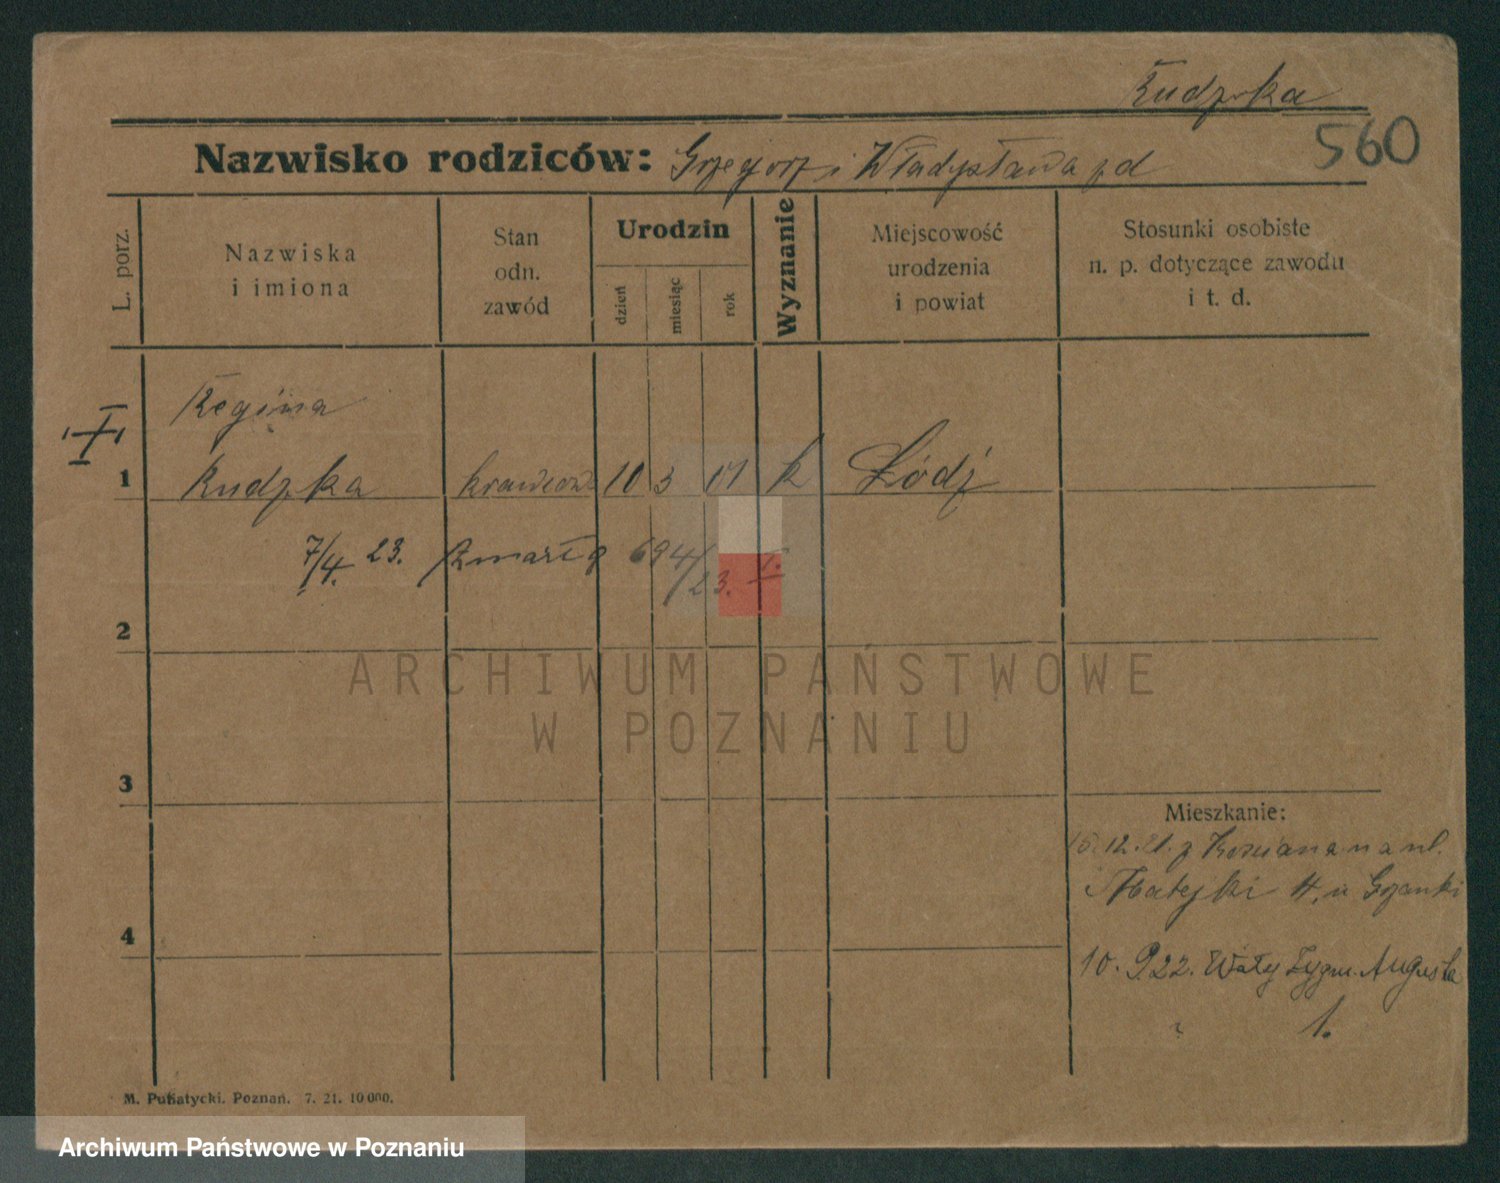 Rudzka
560
Nazwisko rodziców: Grzegorz i Władysława zd
L. porz.
Nazwiska
i imiona
Stan
odn.
zawód
Urodzin
dzień
miesiąc
rok
Wyznanie
Miejscowość
urodzenia
i powiat
Stosunki osobiste
n. p. dotyczące zawodu
i t. d.
Regina
1 Rudzka krawcow. 10 3 01 k Łódź
7/4. 23. Zmarła 694/23. I.
2
ARCHIWUM PAŃSTWOWE
W POZNANIU
3
Mieszkanie:
15.12.21. z Poznania na ul.
Matejki
4
10. 922. Wały Zygm. Augusta
1.
M. Putiatycki. Poznań. 7. 21. 10 000.
Archiwum Państwowe w Poznaniu